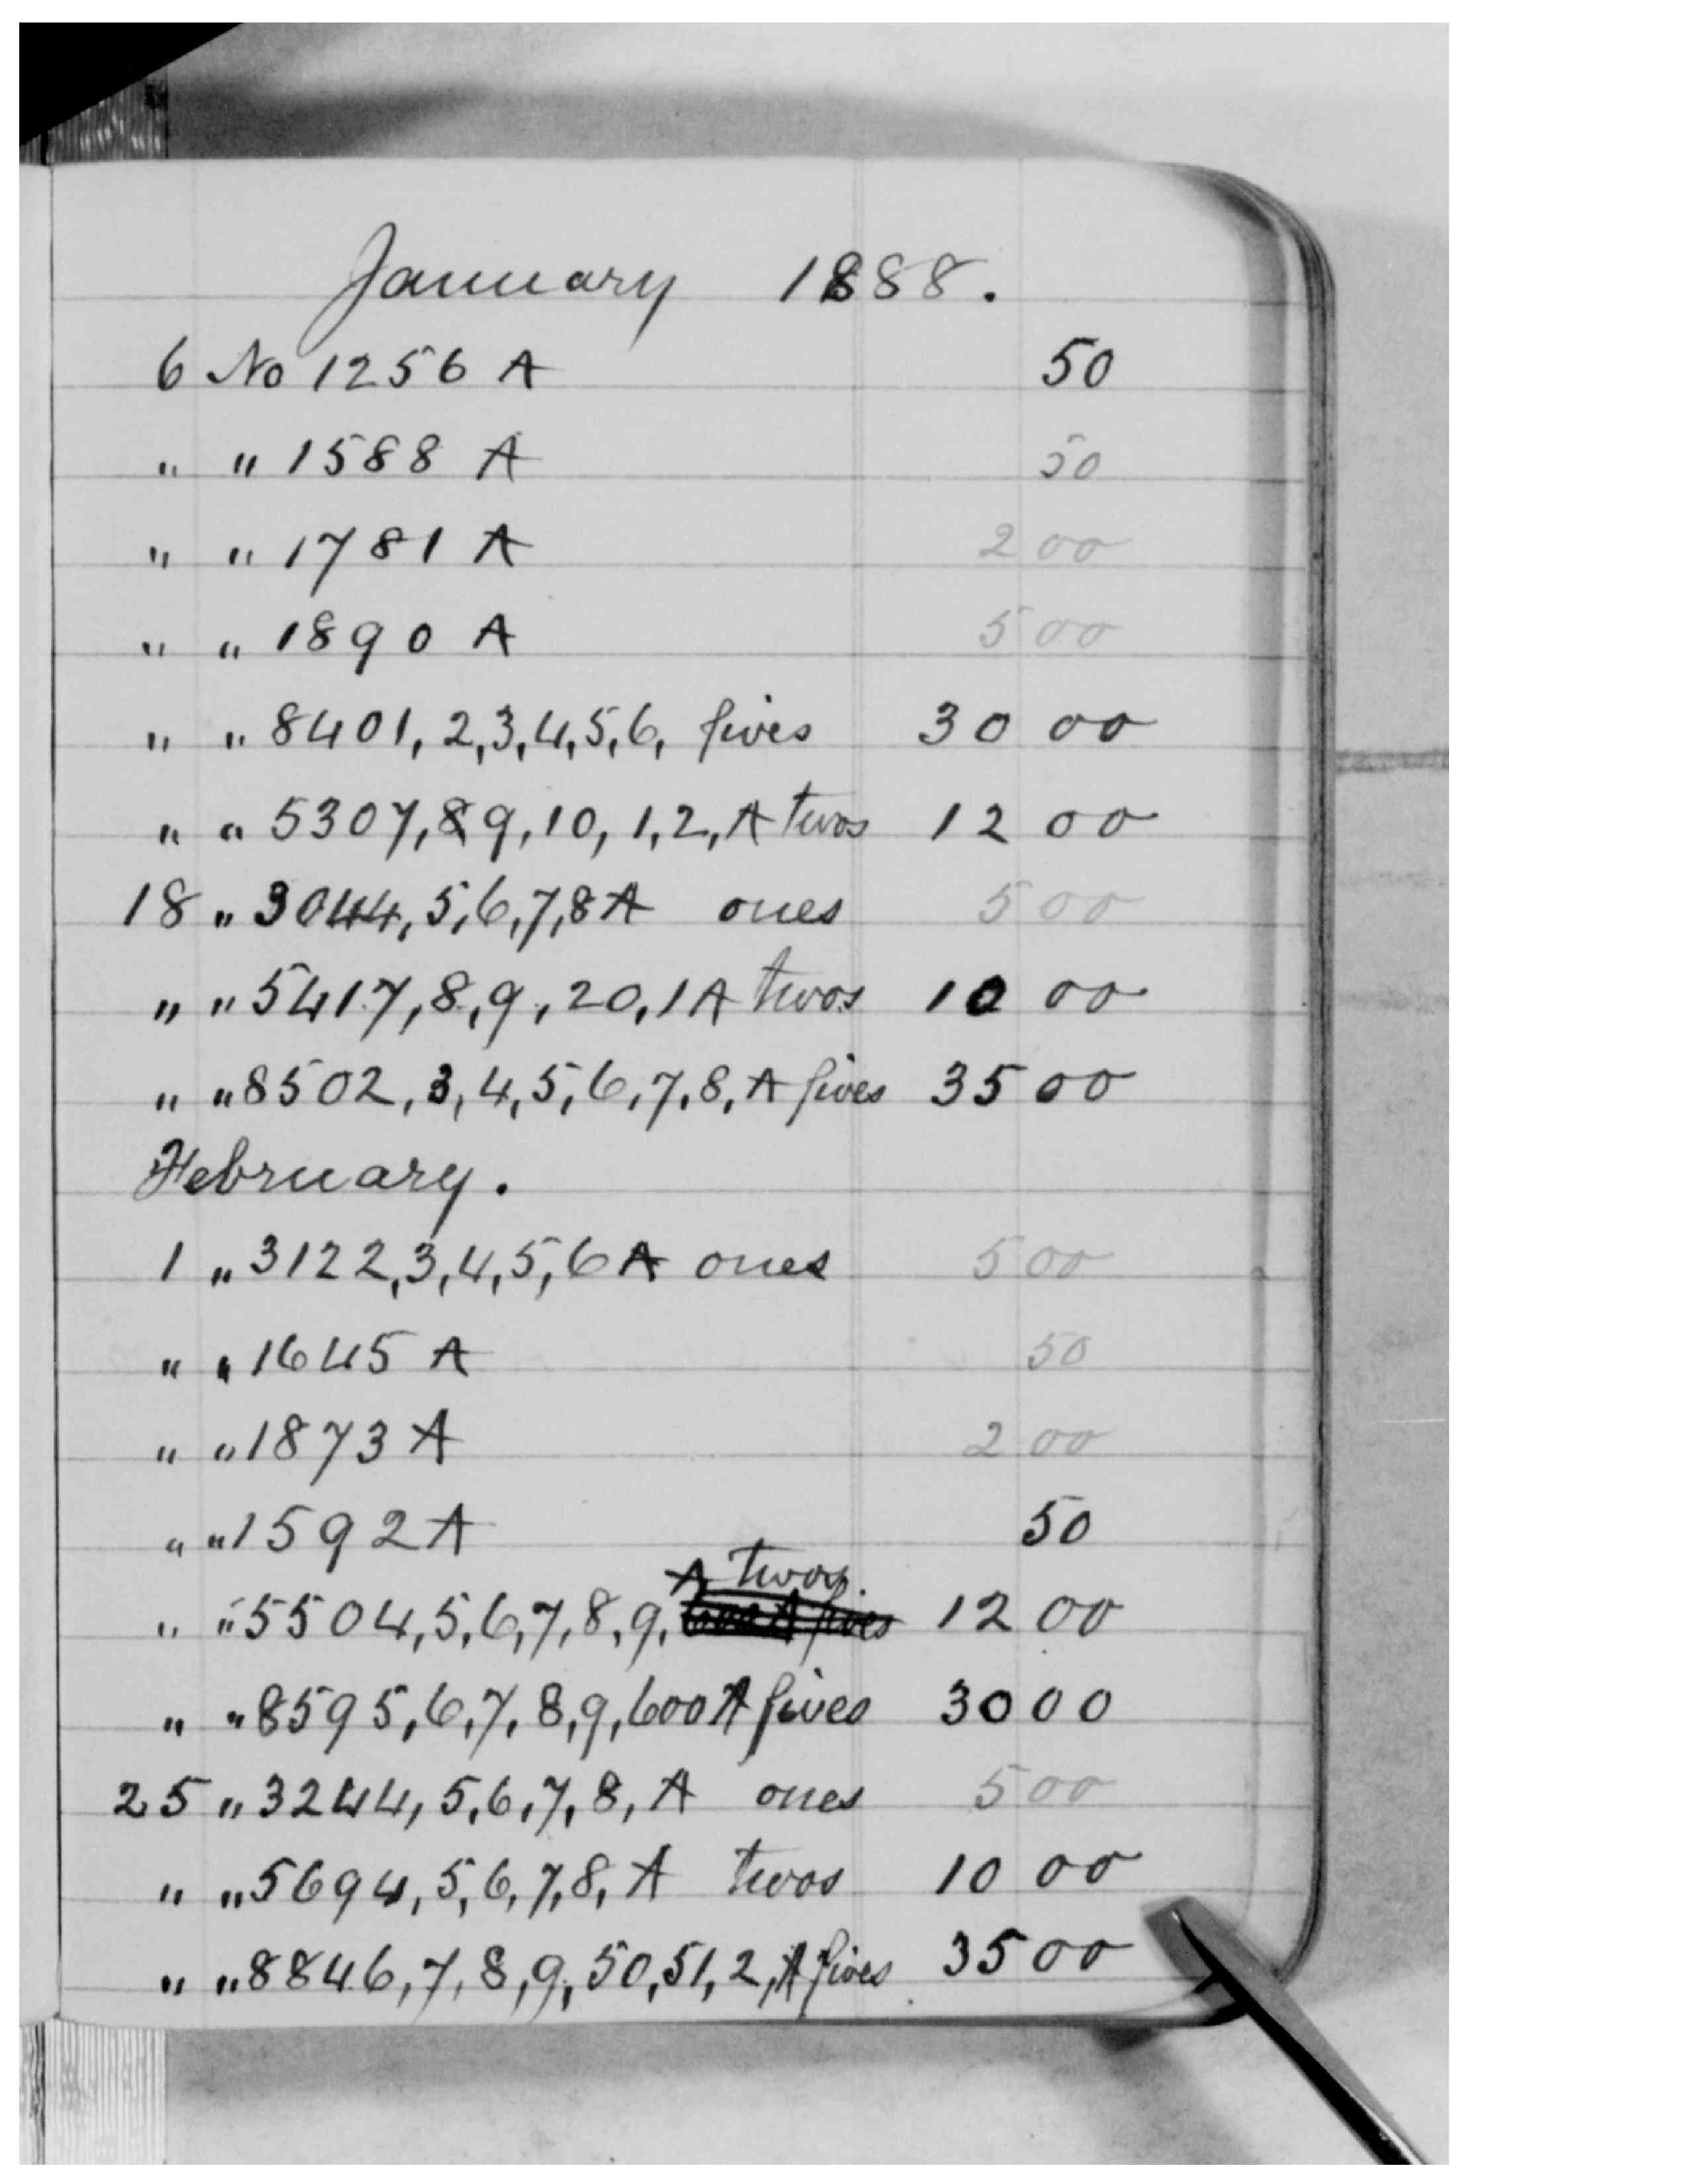 January 1888.
6 No 1256 A 50
" " 1588 A 50
" " 1781 A 2 00
" " 1890 A 5 00
" " 8401, 2, 3, 4, 5, 6, fives 30 00
" " 5307, 8 9, 10, 1, 2, A twos 12 00
18 " 3044, 5, 6, 7, 8 A ones 5 00
" " 5417, 8, 9, 20, 1 A twos 10 00
" " 8502, 3, 4, 5, 6, 7, 8, A fives 35 00
February.
1 " 3122, 3, 4, 5, 6 A ones 5 00
" " 1645 A 50
" " 1873 A 2 00
" " 1592 A 50
A twos.
" " 5504, 5, 6, 7, 8, 9, 12 00
" " 8595, 6, 7, 8, 9, 600 A fives 30 00
25 " 3244, 5, 6, 7, 8, A ones 5 00
" " 5694, 5, 6, 7, 8, A twos 10 00
" " 8846, 7, 8, 9, 50, 51, 2, A fives 35 00